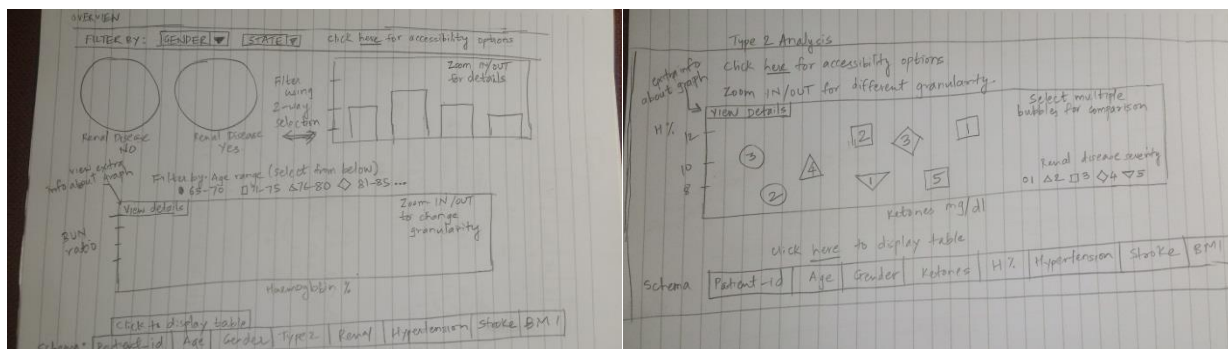 OVERVIEW
FILTER BY: GENDER STATE Click here for accessibility options
Filter
using
2-way
selection
Zoom IN/OUT
for details
Renal Disease
NO
Renal Disease
Yes
View extra
info about graph
Filter by: Age range (select from below)
65-70 71-75 76-80 81-85 ...
View details
Zoom IN/OUT
to change
granularity
BUN
ratio
Haemoglobin %
Click to display table
Schema: Patient_id Age Gender Type2 Renal Hypertension Stroke BMI
Type 2 Analysis
Click here for accessibility options
Zoom IN/OUT for different granularity.
extra info
about graph
View Details
Select multiple
bubbles for comparison
H%
12
10
8
3
2
4
2
3
1
1
5
Renal disease severity
1 2 3 4 5
Ketones mg/dl
Click here to display table
Schema Patient_id Age Gender Ketones H% Hypertension Stroke BMI